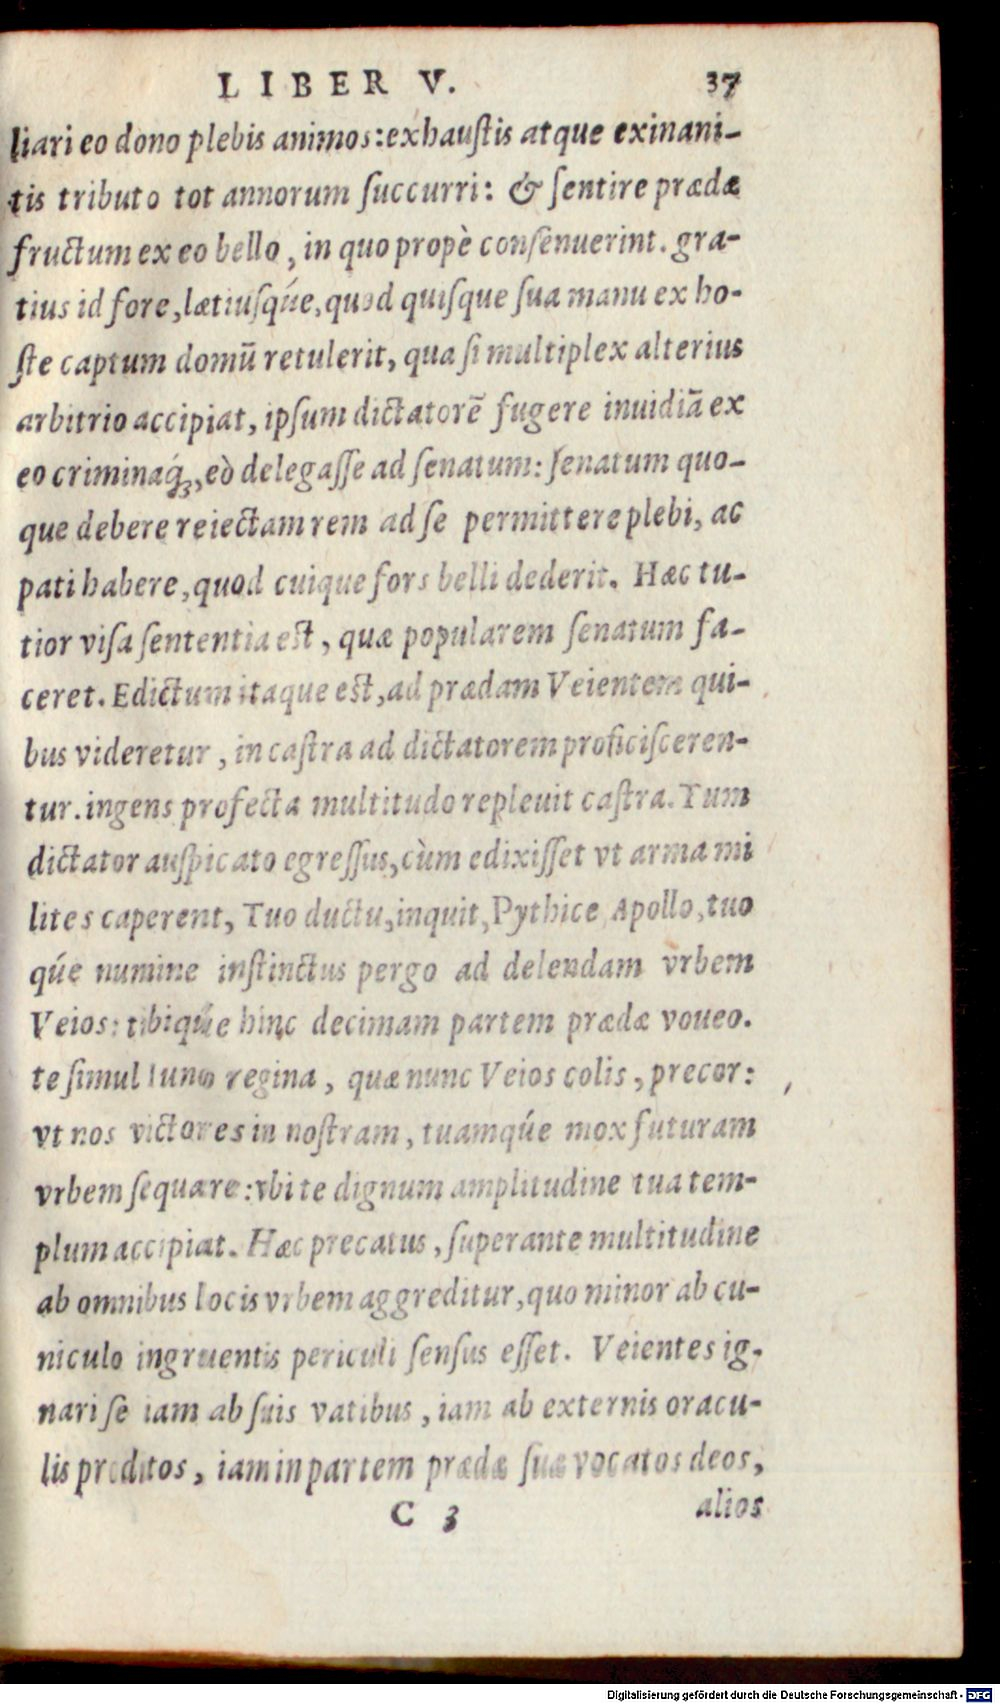 LIBER V. 37
liari eo dono plebis animos: exhauſtis atque exinani-
tis tributo tot annorum ſuccurri: & ſentire prædæ
fructum ex eo bello, in quo propè conſenuerint. gra-
tius id fore, lætiuſqúe, quod quiſque ſua manu ex ho-
ſte captum domū retulerit, qua ſi multiplex alterius
arbitrio accipiat, ipſum dictatorē fugere inuidiā ex
eo criminaq́ꝫ, eò delegaſſe ad ſenatum: ſenatum quo-
que debere reiectam rem ad ſe permittere plebi, ac
pati habere, quod cuique fors belli dederit. Hæc tu-
tior viſa ſententia eſt, quæ popularem ſenatum fa-
ceret. Edictum itaque eſt, ad prædam Veientem qui-
bus videretur, in caſtra ad dictatorem proficiſceren-
tur. ingens profecta multitudo repleuit caſtra. Tum
dictator auſpicato egreſſus, cùm edixiſſet vt arma mi
lites caperent, Tuo ductu, inquit, Pythice Apollo, tuo
qúe numine inſtinctus pergo ad delendam vrbem
Veios: tibiqúe hinc decimam partem prædæ voueo.
te ſimul Iuno regina, quæ nunc Veios colis, precor:
vt nos victores in noſtram, tuamqúe mox futuram
vrbem ſequare: vbi te dignum amplitudine tua tem-
plum accipiat. Hæc precatus, ſuperante multitudine
ab omnibus locis vrbem aggreditur, quo minor ab cu-
niculo ingruentis periculi ſenſus eſſet. Veientes ig-
nari ſe iam ab ſuis vatibus, iam ab externis oracu-
lis proditos, iam in partem prædæ ſuæ vocatos deos,
C 3 alios
Digitalisierung gefördert durch die Deutsche Forschungsgemeinschaft - DFG